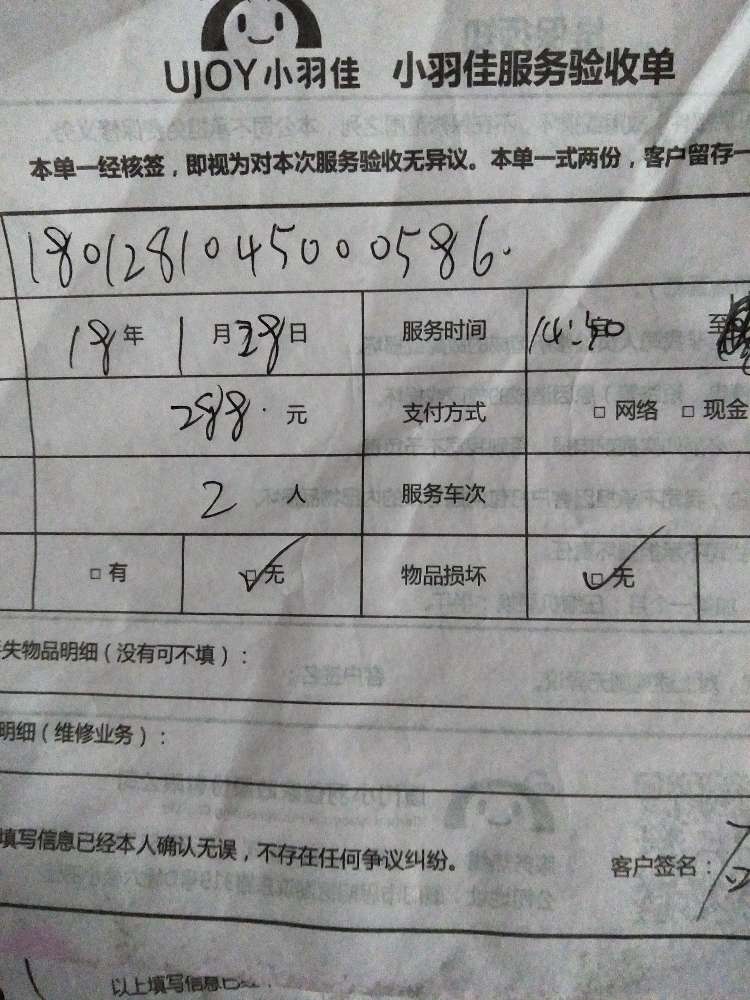 UJOY小羽佳 小羽佳服务验收单
本单一经核签，即视为对本次服务验收无异议。本单一式两份，客户留存一
1801281045000586.
18年 1月28日 服务时间 14:40 至
288. 元 支付方式 □ 网络 □ 现金
2 人 服务车次
□ 有 □ 无 物品损坏 □ 无
失物品明细（没有可不填）：
明细（维修业务）：
填写信息已经本人确认无误，不存在任何争议纠纷。 客户签名：
以上填写信息已